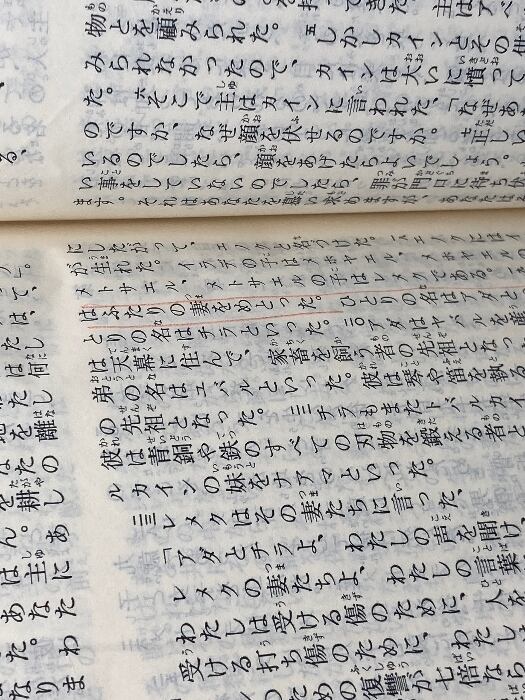 ってきた。主はアベ
物とを顧みられた。五しかしカインとその供
みられなかったので、カインは大いに憤って
た。六そこで主はカインに言われた、「なぜあ
のですか、なぜ顔を伏せるのですか。正しい
いるのでしたら、顔をあげたらよいでしょう。
い事をしていないのでしたら、罪が門口に待ち伏
ます。それはあなたを慕い求めますが、あなたは
にしたがって、エノクと名づけた。一八エノクには
が生れた。イラデの子はメホヤエル、メホヤエルの
メトサエル、メトサエルの子はレメクである。
はふたりの妻をめとった。ひとりの名はアダと
とりの名はチラといった。二〇アダはヤバルを産
は天幕に住んで、家畜を飼う者の先祖となっ
弟の名はユバルといった。彼は琴や笛を執る
の先祖となった。二二チラもまたトバルカイ
彼は青銅や鉄のすべての刃物を鍛える者と
ルカインの妹をナアマといった。
二三レメクはその妻たちに言った、
「アダとチラよ、わたしの声を聞け
レメクの妻たちよ、わたしの言葉
わたしは受ける傷のために、人を
受ける打ち傷のために、わたしは
ための復讐が七倍なら
る、
て、
は、
たし
は何
地を離
なたの
を耕し
ん。あ
は主に
あなた
た。わ
なりま